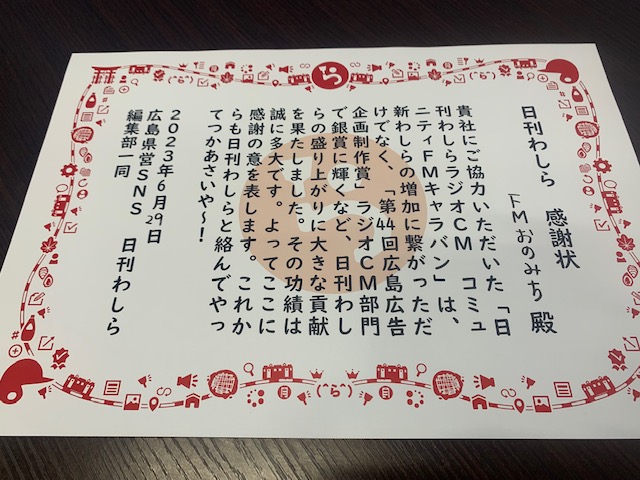 ら
日刊わしら　感謝状
FMおのみち 殿
貴社にご協力いただいた「日
刊わしらラジオCM　コミュ
ニティFMキャラバン」は、
新わしらの増加に繋がっただ
けでなく、「第44回広島広告
企画制作賞」ラジオCM部門
で銀賞に輝くなど、日刊わし
らの盛り上がりに大きな貢献
を果たしました。その功績は
誠に多大です。よってここに
感謝の意を表します。これか
らも日刊わしらと絡んでやっ
てつかあさいや〜！
2023年6月29日
広島県営SNS　日刊わしら
編集部一同